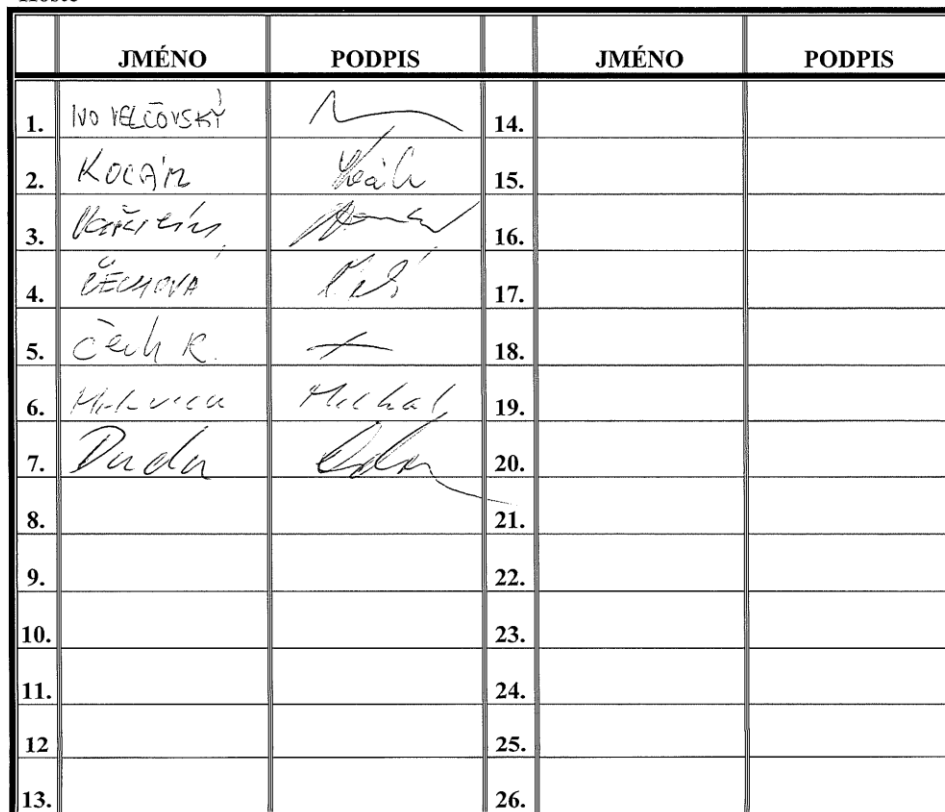 JMÉNO PODPIS JMÉNO PODPIS
1. IVO VELČOVSKÝ 14.
2. KOCÁM 15.
3. 16.
4. ČECHOVÁ 17.
5. Čech R. 18.
6. Michal 19.
7. Duda 20.
8. 21.
9. 22.
10. 23.
11. 24.
12 25.
13. 26.